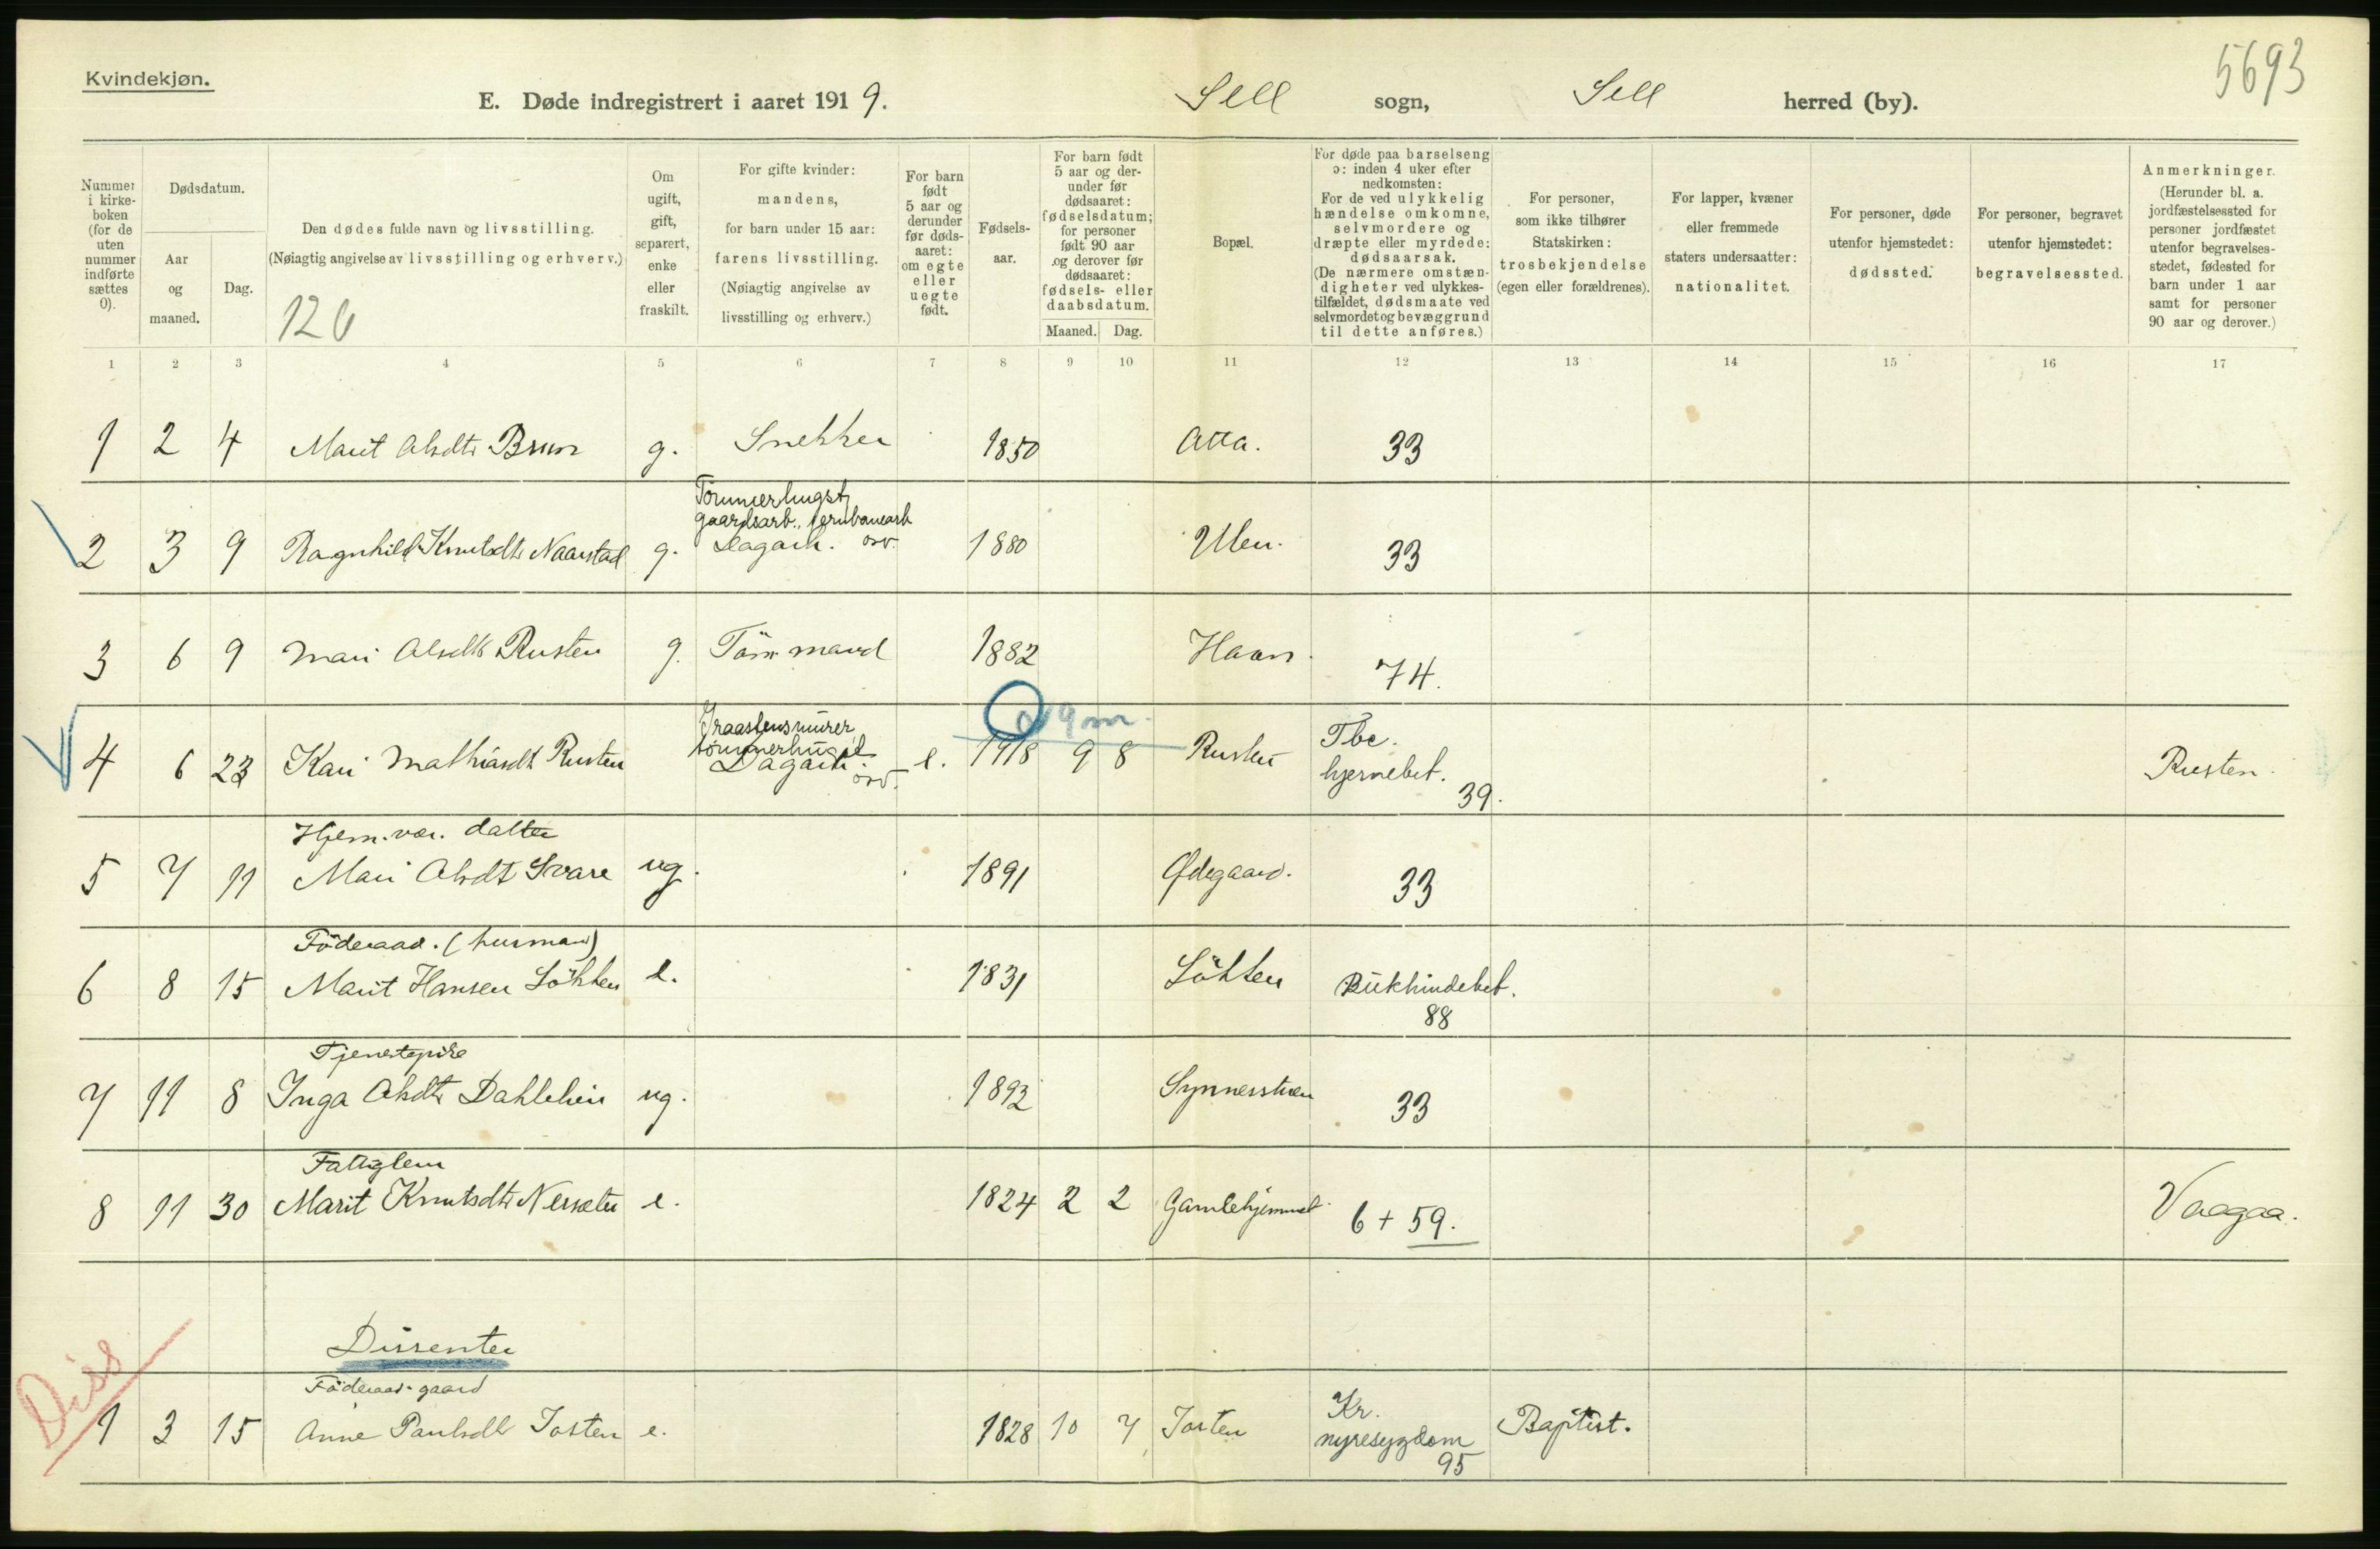 5693
Kvindekjøn.
E. Døde indregistrert i aaret 1919. Sell sogn, Sell herred (by).
Nummer i kirke-boken (for de uten nummer indførte sættes 0).
Dødsdatum.
Aar og maaned.
Dag.
Den dødes fulde navn og livsstilling.
(Nøiagtig angivelse av livsstilling og erhverv.)
126
Om ugift, gift, separert, enke eller fraskilt.
For gifte kvinder: mandens, for barn under 15 aar: farens livsstilling.
(Nøiagtig angivelse av livsstilling og erhverv.)
For barn født 5 aar og derunder før døds-aaret: om egte eller uegte født.
Fødsels-aar.
For barn født 5 aar og der-under før dødsaaret: fødselsdatum; for personer født 90 aar og derover før dødsaaret: fødsels- eller daabsdatum.
Maaned. Dag.
Bopæl.
For døde paa barselseng ɔ: inden 4 uker efter nedkomsten:
For de ved ulykkelig hændelse omkomne, selvmordere og dræpte eller myrdede: dødsaarsak.
(De nærmere omstæn-digheter ved ulykkes-tilfældet, dødsmaate ved selvmordet og bevæggrund til dette anføres.)
For personer, som ikke tilhører Statskirken: trosbekjendelse (egen eller forældrenes).
For lapper, kvæner eller fremmede staters undersaatter: nationalitet.
For personer, døde utenfor hjemstedet: dødssted.
For personer, begravet utenfor hjemstedet: begravelsessted.
Anmerkninger.
(Herunder bl. a. jordfæstelsessted for personer jordfæstet utenfor begravelses-stedet, fødested for barn under 1 aar samt for personer 90 aar og derover.)
1 2 3 4 5 6 7 8 9 10 11 12 13 14 15 16 17
1 2 4 Marit Olsdtr Brun g. Snekker 1850 Otta. 33
Tømmerhugst, gaardsarb., jernbanearb
2 3 9 Ragnhild Knutsdtr Naarstad g. Dagarb. osv. 1880 Ulen. 33
3 6 9 Mari Olsdtr Rusten g. Tømmermand 1882 Haan. 74.
9 m.
Graastensmurer, tømmerhugst
4 6 23 Kari Mathiasdt Rusten Dagarb. osv. e. 1918 9 8 Rusten Tbc. hjernebet. 39. Rusten.
Hjem. vær. datter
5 7 11 Mari Olsdt Svare ug. 1891 Ødegaard. 33
Föderaad. (husmand)
6 8 15 Marit Hansen Lökken e. 1831 Lökken Bukhindebet. 88
Tjenestepike
7 11 8 Inga Olsdtr Dahlehein ug. 1892 Synnesstuen 33
Fattiglem
8 11 30 Marit Knutsdtr Nersæter e. 1824 2 2 Gamlehjemmet 6 + 59. Vaagaa.
Dissenter
Diss
Föderaad-gaard
1 3 15 Anne Paulsdtr Josten e. 1828 10 7 Josten Kr. nyresygdom 95 Baptist.